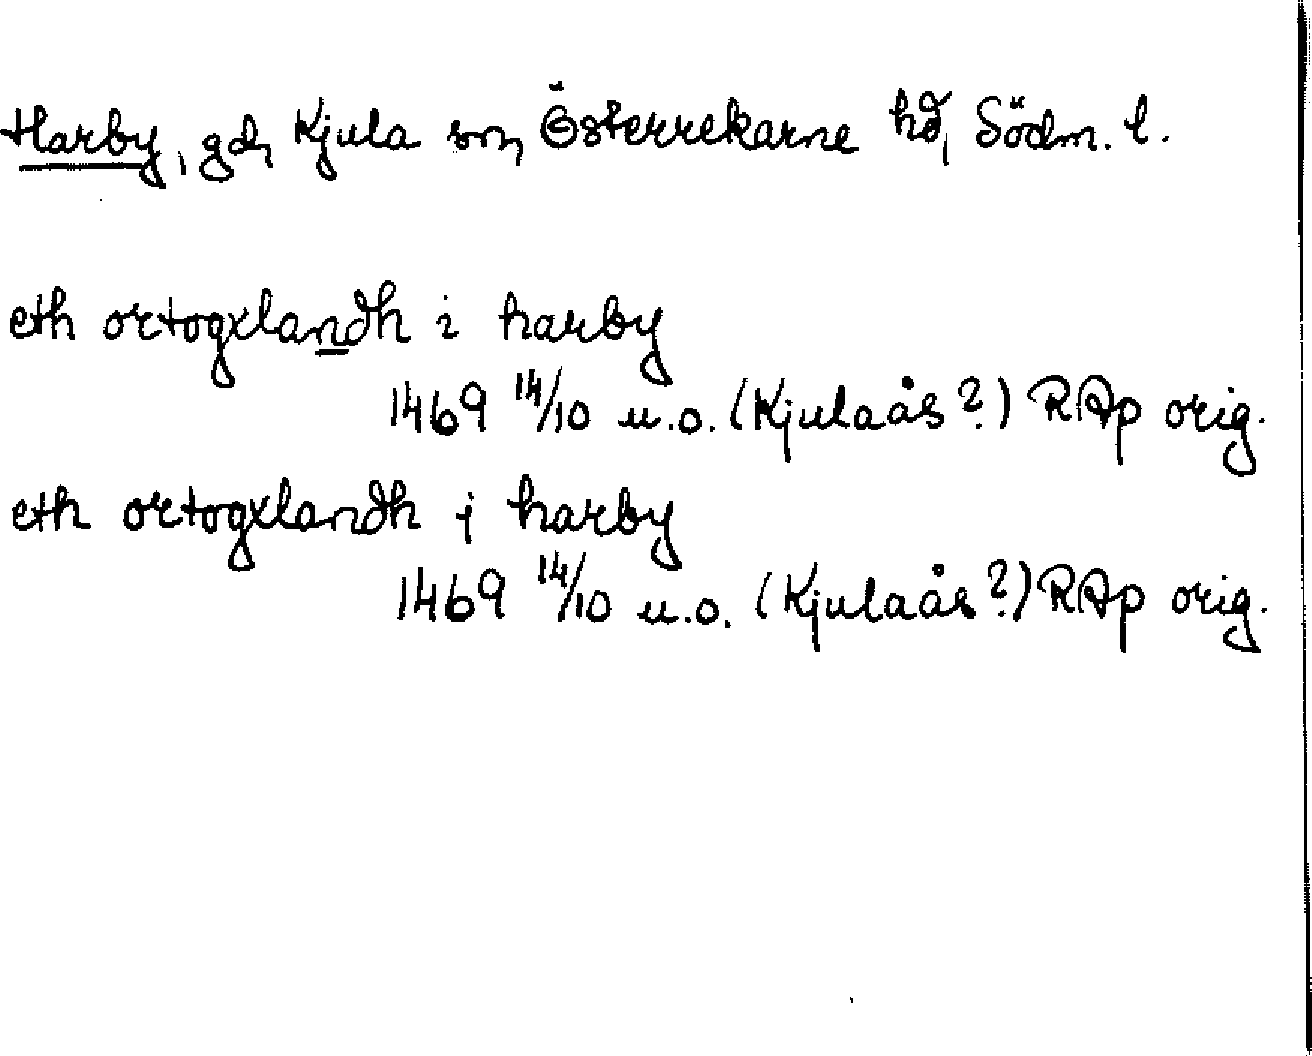 Harby, gd, Kjula sn, Österrekarne hd, Södm. l.
eth ortogxlandh i harby
1469 14/10 u.o. (Kjulaås?) RAp orig.
eth ortogxlandh j harby
1469 14/10 u.o. (Kjulaås?) RAp orig.